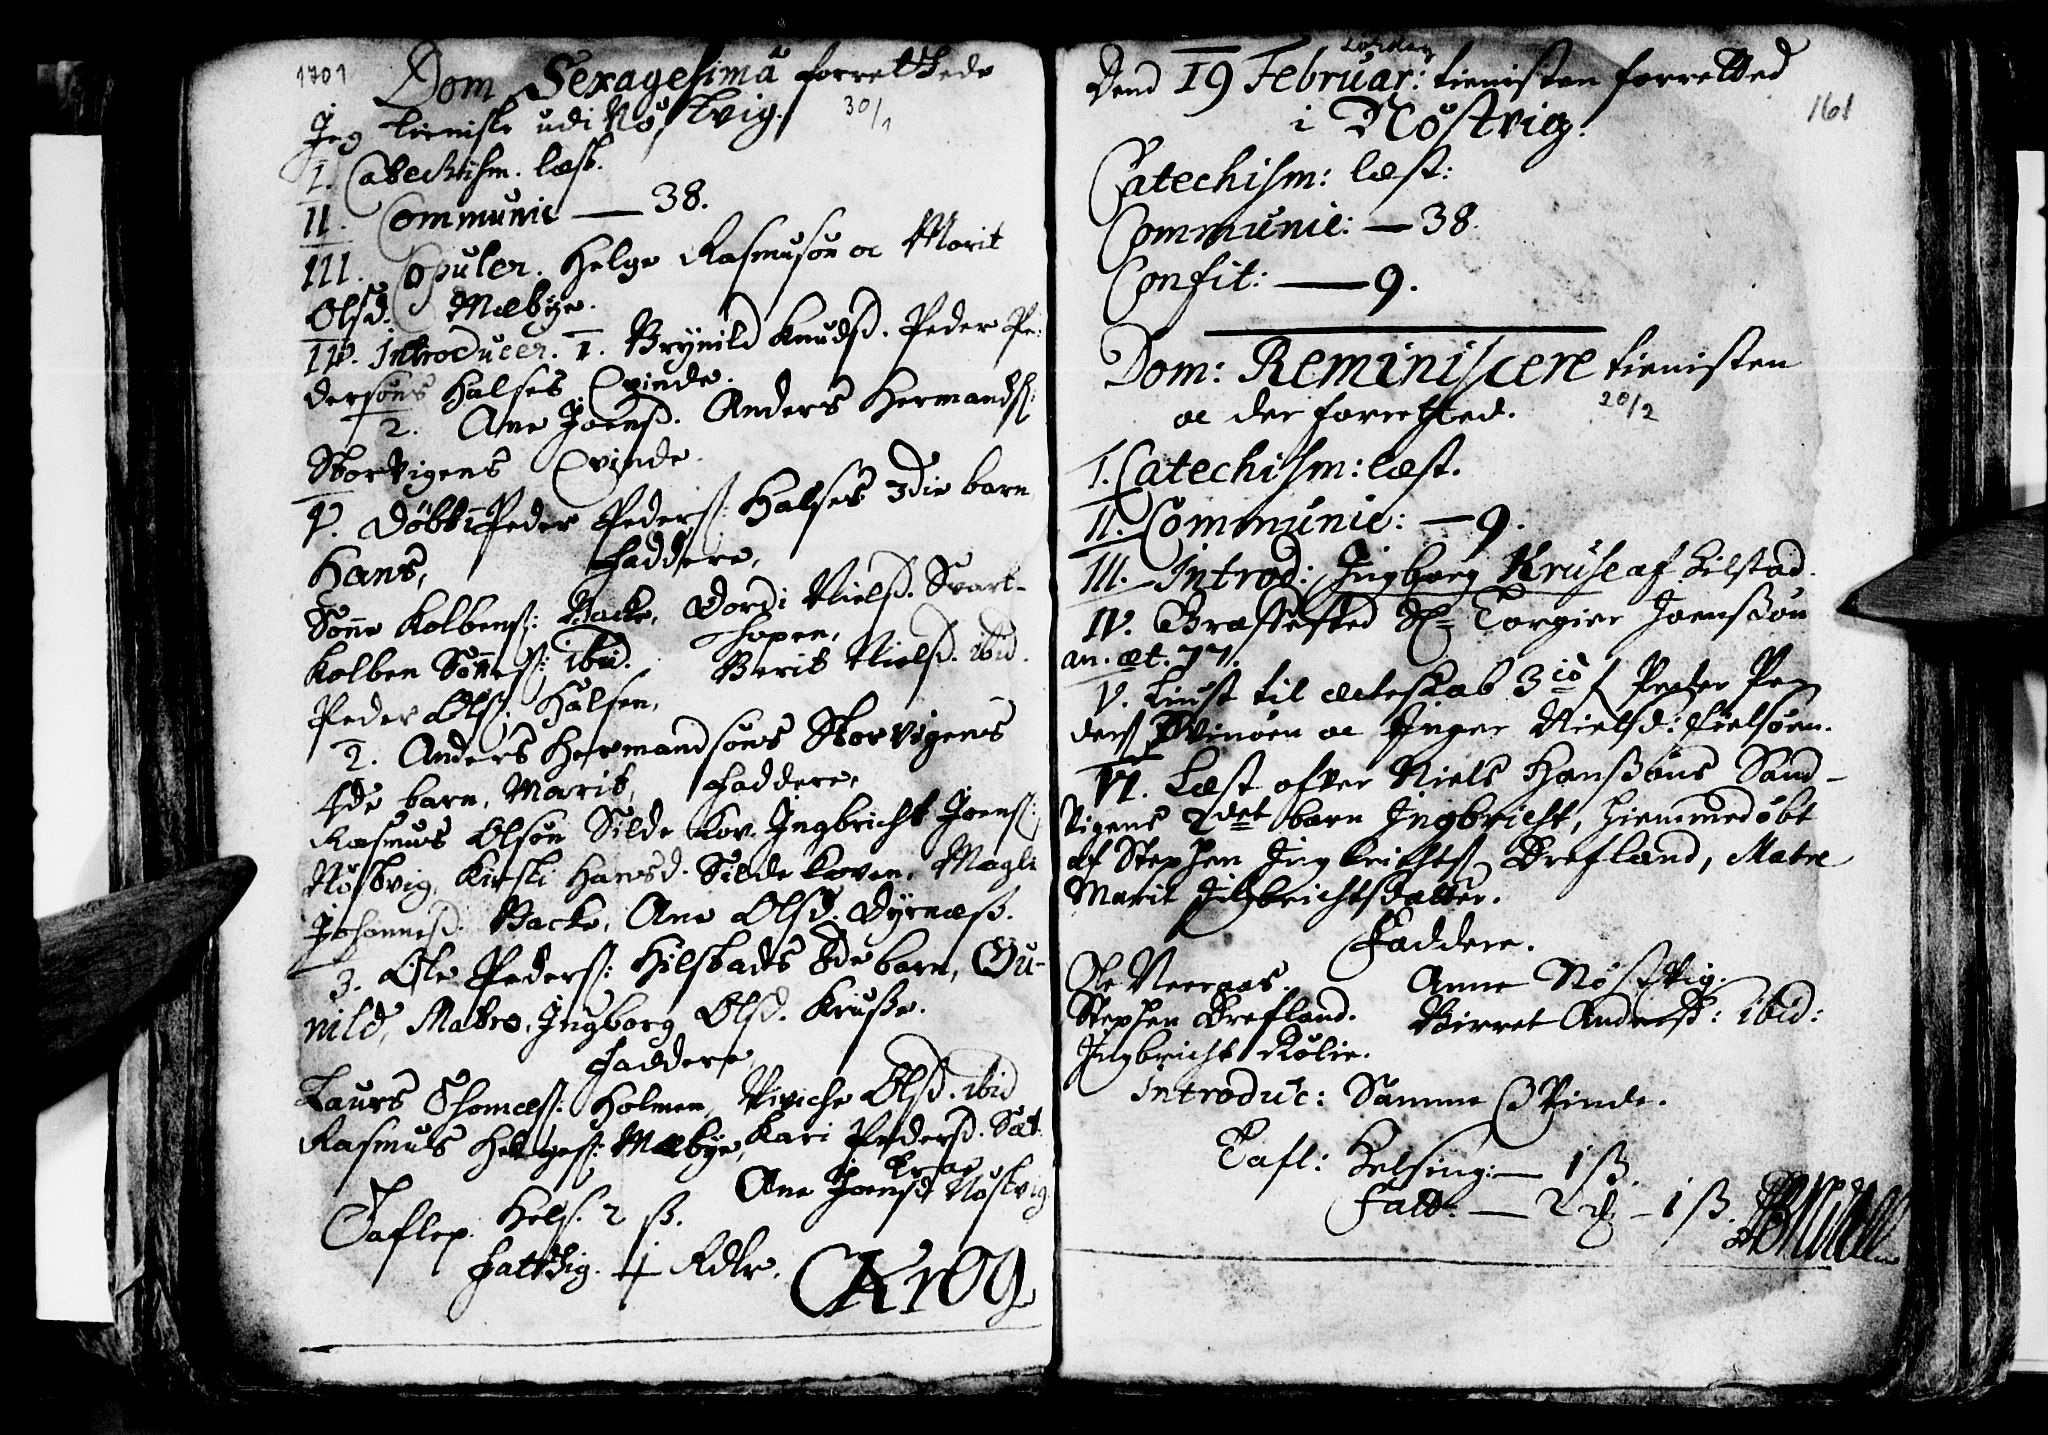 1701
Dom Sexagesima forrettede
30/1
Jeg tieniste udi Nöstvig.
I. Catechism. læst.
II. Communic — 38.
III. Copuler. Helge Rasmusøn oc Marit
Olsd. Mæbye.
IV. Introducer. 1. Brynild Knudsd. Peder Pe-
dersøns Halses Qvinde.
2. Ane Joensd. Anders Hermands:
Storvigens Qvinde.
V. Döbt 1 Peder Peders: Halses 3die barn
Hans, Faddere,
Sönne Kolbens: Backe, Dordi Nielsd. Svart-
hopen,
Kolben Sönnes: ibid. Berit Nielsd. ibid.
Peder Ols: Halsen,
2. Anders Hermandsøns Storvigens
4de barn, Marit, Faddere,
Rasmus Olsøn Silde Kov. Ingbricht Joens:
Nöstvig, Kirsti Hansd. Silde koven, Magli
Johannesd. Backe, Ane Olsd. Dyrnæss.
3. Ole Peders: Hilstads 8de barn, Gu-
nild, Matre, Ingborg Olsd. Kruse.
Faddere,
Laurs Thomæs: Holmen, Viviche Olsd. ibid
Rasmus Helges: Mæbye, Kari Pedersd. Sæt-
krae
Ane Joensd Nöstvig
Taflep. Hels. 2 ß.
Fatthig. 4 Rdlr. CKrog
161
Dend 19 Februar: Løfverdag tienisten forretted
i Nöstvig.
Catechism: læst:
Communic: — 38.
Confit: — 9.
Dom: Reminiscere tienisten
oc der forretted.
20/2
I. Catechism: læst.
II. Communic: — 9.
III. Introd: Ingborg Kruse af Hilstad.
IV. Græsfested Torgier Joensson
an. æt. 77.
V. Liust til ecteskab 3io Peder Pe-
ders Svinöen oc Inger Nielsd: Fielsöen.
VI. Læst ofver Niels Hanssøns Sand-
vigens 2det barn Ingbricht, hiemmedöbt
af Stephen Ingbrichts Drefland, Matre
Marit Ingbrichtsdatter.
Faddere.
Ole Neeraas. Anne Nöstvig.
Stephen Drefland. Birret Andersd: ibid:
Ingbricht Rölie.
Introduc: Samme Qvinde.
Tafl: Helsing: — 1 ß.
Fatt: — 2 — 1 ß.